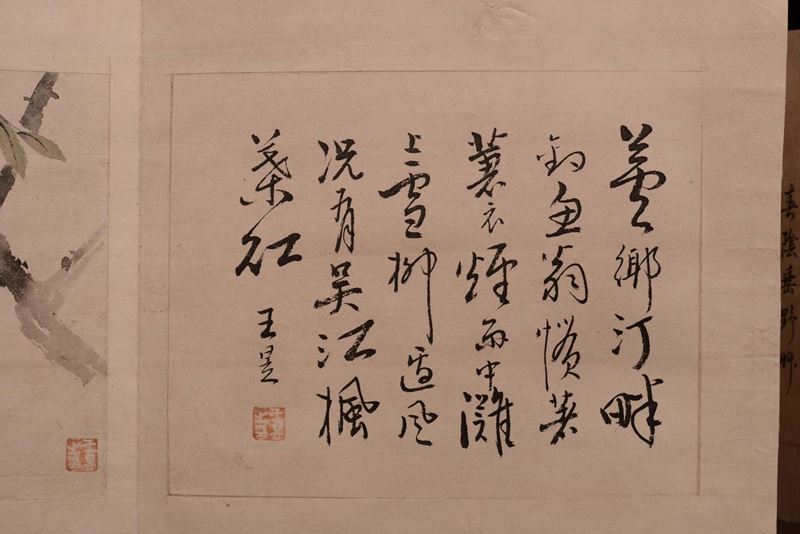 鄉汀畔
釣魚翁慣著
蓑衣煙雨中灘
上雪柳邊風
況有吳江楓
葉紅
王昱
春陰垂野艸